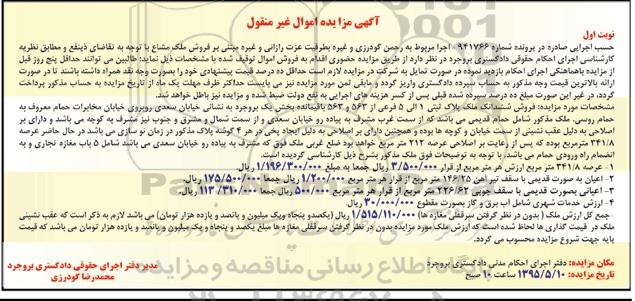 آگهی مزایده اموال غیر منقول
نوبت اول
حسب اجرایی صادره در پرونده شماره ۹۴۱۷۶۶ اجرا مربوط به رحمن گودرزی و غیره بطرفیت عزت رازانی و غیره مبتنی بر فروش ملک مشاع با توجه به تقاضای ذینفع و مطابق نظریه
کارشناسی اجرای احکام حقوقی دادگستری بروجرد در نظر دارد از طریق مزایده حضوری اقدام به فروش اموال توقیف شده با مشخصات ذیل نماید: طالبین می توانند حداقل پنج روز قبل
از مزایده باهماهنگی اجرای احکام بازدید نموده در صورت تمایل به شرکت در مزایده لازم است حداقل ده درصد قیمت پیشنهادی خود را بصورت وجه نقد همراه داشته باشند تا در صورت
ارائه بالاترین قیمت وجه مذکور به حساب سپرده دادگستری واریز گردد و مابقی ثمن مورد مزایده نیز می بایست حداکثر ظرف مهلت یک ماه از تاریخ مزایده به حساب مذکور پرداخت
گردد، در غیر این صورت مبلغ ده درصد سپرده شده قبلی پس از کسر هزینه های اجرایی به نفع دولت ضبط شده و مزایده نیز باطل خواهد شد.
مشخصات مورد مزایده: فروش ششدانگ ملک پلاک ثبتی ۱ الی ۵ فرعی از ۵۶۳ و ۵۶۳ باقیمانده بخش یک بروجرد به نشانی خیابان سعدی روبروی خیابان مخابرات حمام معروف به
حمام روسی. ملک مذکور شامل حمام قدیمی می باشد که از سمت غرب مشرف به پیاده رو خیابان سعدی و از سمت شمال و مشرق و جنوب نیز مشرف به کوچه می باشد و دارای بر
اصلاحی به دلیل عقب نشینی از سمت خیابان و کوچه ها بوده و همچنین دارای بر اصلاحی به دلیل ایجاد پخی در هر ۴ گوشه پلاک مذکور در زمان نو سازی می باشد در حال حاضر عرصه
۳۴۱/۸ مترمربع بوده که پس از رعایت بر اصلاحی عرصه ۲۱۲ متر مربع خواهد بود ضلع غربی ملک فوق که مشرف به پیاده رو خیابان سعدی می باشد شامل ۵ باب مغازه تجاری و به
انضمام راه ورودی حمام می باشد، با توجه به توضیحات فوق ملک مذکور بشرح ذیل کارشناسی گردیده است.
۱- عرصه ۳۴۱/۸ متر مربع ارزش هر متر مربع از قرار ۳/۵۰۰/۰۰۰ ریال جمعا به مبلغ ۱/۱۹۶/۳۰۰/۰۰۰ ریال.
۲- اعیان به صورت قدیمی با سقف تیر آهن ۱۴۶/۲۵ متر مربع از قرار هر متر مربع ۱/۲۰۰/۰۰۰ ریال جمعا ۱۷۵/۵۰۰/۰۰۰ ریال.
۳- اعیانی بصورت قدیمی با سقف چوبی ۲۲۶/۶۲ متر مربع از قرار هر متر مربع ۵۰۰/۰۰۰ ریال جمعا ۱۱۳/۳۱۰/۰۰۰ ریال.
۴- ارزش خدمات شهری شامل آب برق و گاز بصورت مقطوع ۳۰/۰۰۰/۰۰۰ ریال.
جمع کل ارزش ملک (بدون در نظر گرفتن سرقفلی مغازه ها) ۱/۵۱۵/۱۱۰/۰۰۰ ریال (یکصدو پنجاه ویک میلیون و پانصد و یازده هزار تومان) می باشد لازم به ذکر است که عقب نشینی
ملک در قیمت گذاری ها لحاظ شده است که ارزش ملک مورد مزایده بدون در نظر گرفتن سرقفلی مغازه ها مبلغ یکصد و پنجاه و یک میلیون و پانصد و یازده هزار تومان می باشد که قیمت
پایه جهت شروع مزایده محسوب می گردد.
مکان مزایده: دفتر اجرای احکام مدنی دادگستری بروجرد
تاریخ مزایده: ۱۳۹۵/۵/۱۰ ساعت ۱۰ صبح
مدیر دفتر اجرای حقوقی دادگستری بروجرد
محمدرضا گودرزی